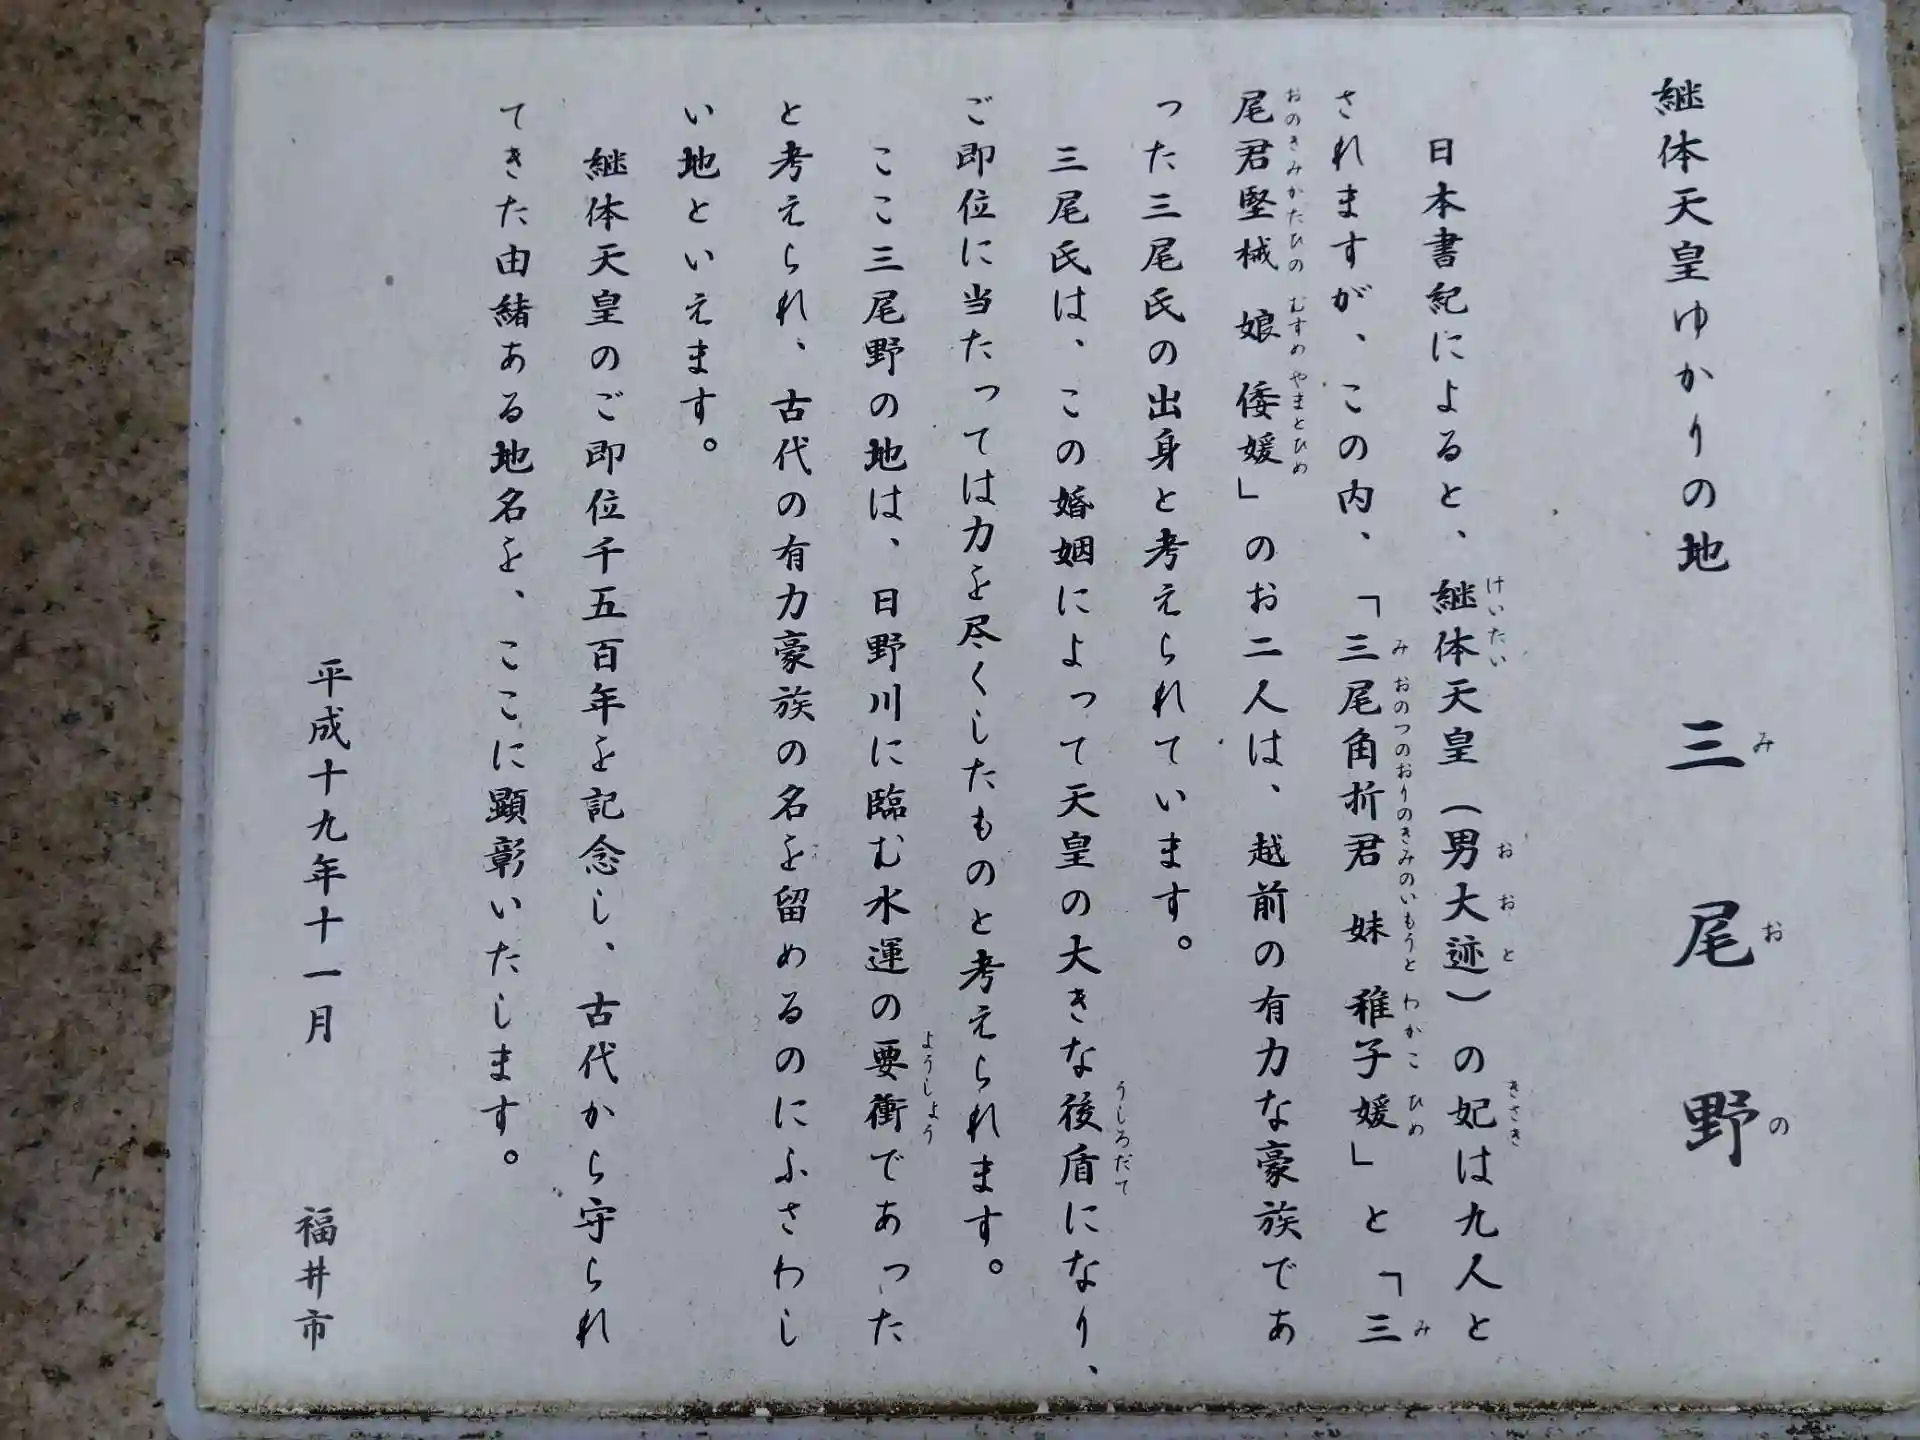 継体天皇ゆかりの地 三尾野
み お の
日本書紀によると、継体天皇(男大迹)の妃は九人と
けいたい おおと きさき
されますが、この内、「三尾角折君 妹 稚子媛」と「三
み おのつのおりのきみのいもうと わかこ ひめ み
尾君堅械 娘 倭媛」のお二人は、越前の有力な豪族であ
おのきみかたひの むすめ やまとひめ
った三尾氏の出身と考えられています。
三尾氏は、この婚姻によって天皇の大きな後盾になり、
うしろだて
ご即位に当たっては力を尽くしたものと考えられます。
ここ三尾野の地は、日野川に臨む水運の要衝であった
ようしょう
と考えられ、古代の有力豪族の名を留めるのにふさわし
い地といえます。
継体天皇のご即位千五百年を記念し、古代から守られ
てきた由緒ある地名を、ここに顕彰いたします。
平成十九年十一月 福井市